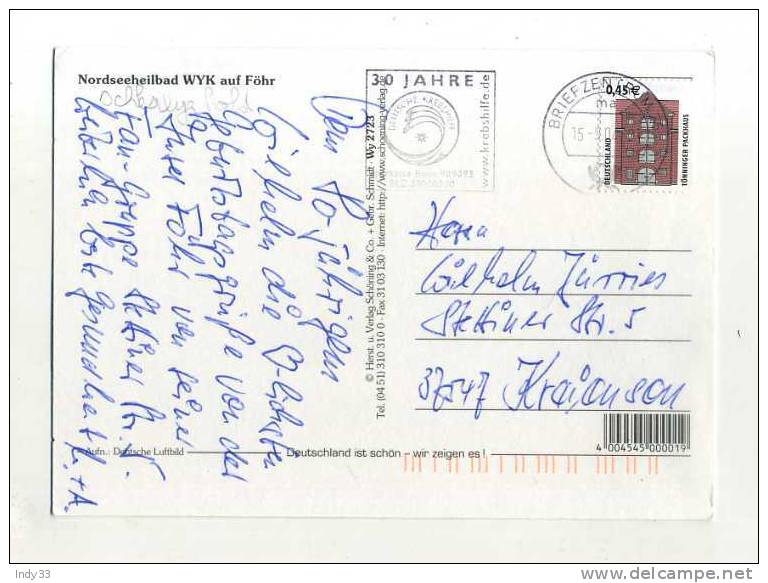 Nordseeheilbad WYK auf Föhr
Dem 70-jährigen
Wilhelm die
Geburtstagsgrüße von der
Insel Föhr von seiner
Fan-Gruppe Stettiner Str. 1.
Weiterhin beste Gesundheit
+ A.
Aufn.: Deutsche Luftbild
Deutschland ist schön – wir zeigen es !
© Herst. u. Verlag Schöning & Co. + Gebr. Schmidt · Wy 2723
Tel. (04 51) 310 310 0 · Fax 31 03 130 · Internet: http://www.schoening-verlag.de
30 JAHRE
DEUTSCHE KREBSHILFE
www.krebshilfe.de
BRIEFZENTRUM
0,45 €
DEUTSCHLAND
TÖNNINGER PACKHAUS
Herrn
Wilhelm Jürries
Stettiner Str. 5
37547 Kreiensen
4 004545 000019
Indy33